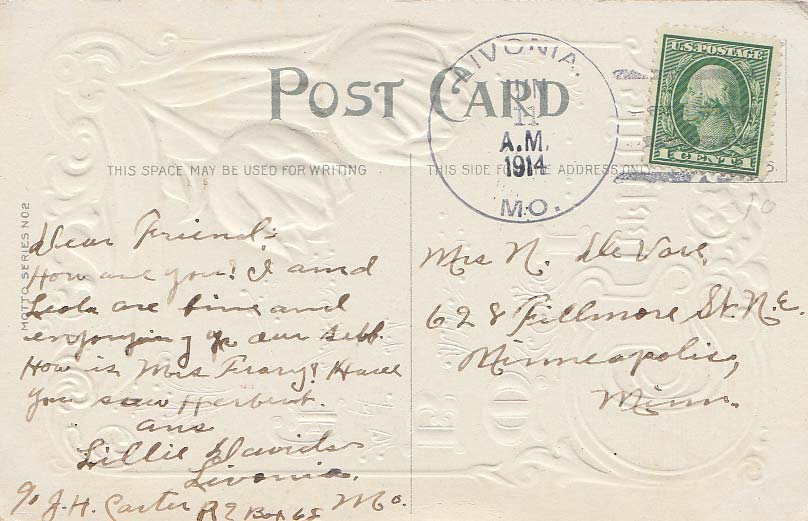 POST CARD
THIS SPACE MAY BE USED FOR WRITING
THIS SIDE FOR THE ADDRESS ONLY
LIVONIA,
JUN
11
A.M.
1914
MO.
U.S. POSTAGE
1 CENT 1
MOTTO SERIES NO2
Dear Friend,
How are you? I and
Leola are fine and
enjoying our
How is Mrs Have
you saw Herbert.
ans
Lillie Davids
Livonia.
Mo.
% J.H. Carter R 2 Box 68
Mrs N. DeVore,
628 Fillmore St. N.E.
Minneapolis,
Minn.